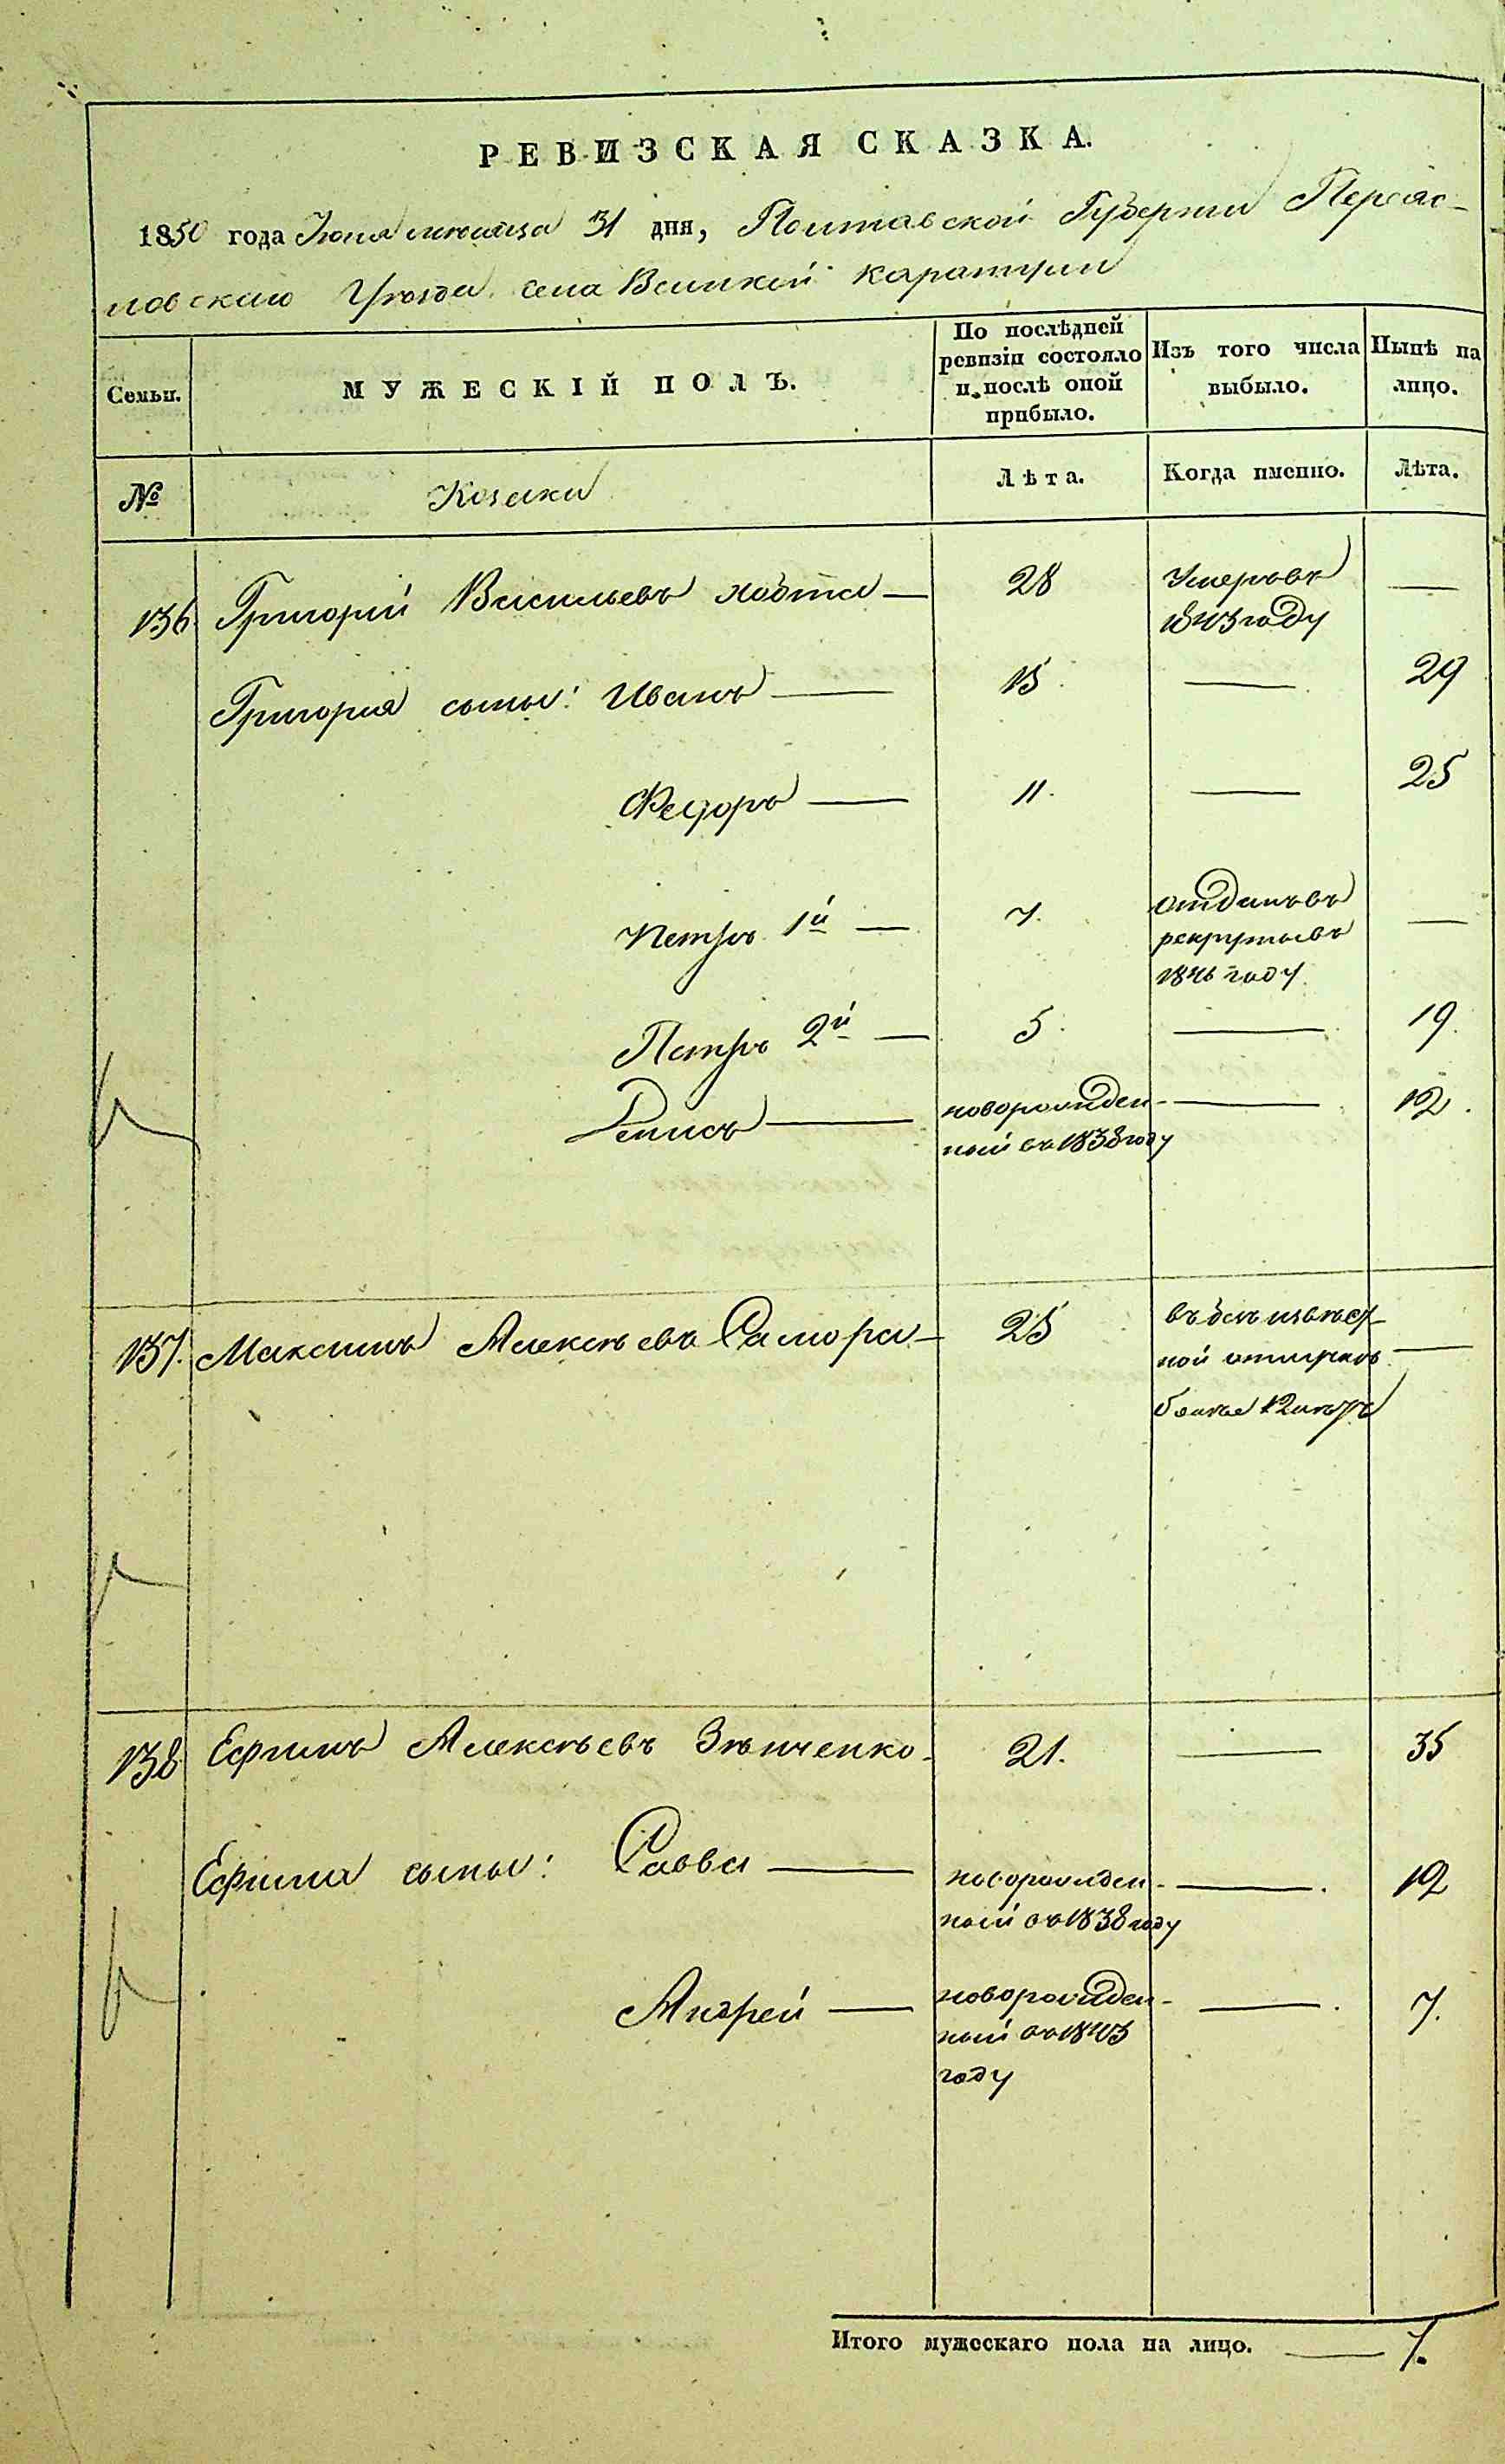 РЕВИЗСКАЯ СКАЗКА.
1850 года Июля месяца 31 дня, Полтавской Губернии Переяс-
ловскаго Уѣзда села Великой Каратули
Семьи.
МУЖЕСКІЙ ПОЛЪ.
По послѣдней ревизіи состояло и послѣ оной прибыло.
Изъ того числа выбыло.
Нынѣ на лицо.
№
Козаки
Лѣта.
Когда именно.
Лѣта.
136 Григорій Васильевъ Хобта — 28 Умеръ въ —
1843 году
Григорія сыны: Иванъ — 15 — 29
Федоръ — 11. — 25
Петръ 1й — 7. отданъ въ —
рекруты въ
1846 году
Петръ 2й — 5. — 19.
Денисъ — новорожден- — 12.
ный въ 1838 году
137. Максимъ Алексѣевъ Самора — 25 въ безъизвѣст- —
ной отлучкѣ
болѣе 12 лѣтъ
138 Ефимъ Алексѣевъ Зѣнченко. 21. — 35
Ефима сыны: Савва — новорожден- — 12
ный въ 1838 году
Андрей — новорожден- — 7.
ный въ 1843
году
Итого мужескаго пола на лицо. — 7.